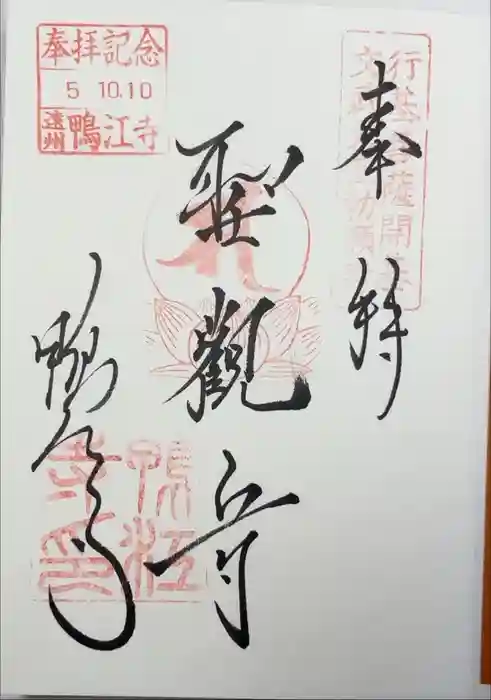 奉拝
行基菩薩開
聖観音
奉拝記念
5 10.10
遠州 鴨江寺
鴨江寺
鴨江寺印